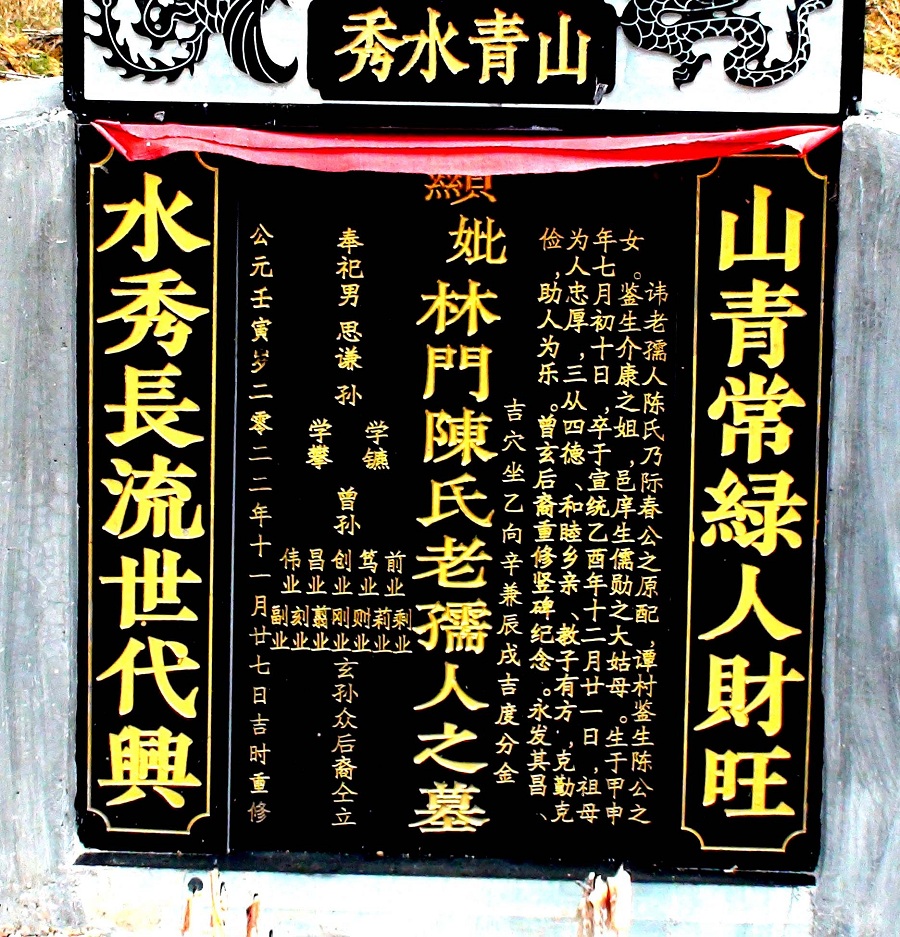 山青水秀
山青常緑人財旺
讳老孺人陈氏乃际春公之原配,谭村鉴生陈公之
女。鉴生介康之姐,邑庠生儒勋之大姑母。生于甲申
年七月初十日,卒于宣统乙酉年十二月廿一日,祖母
为人忠厚,三从四德、和睦乡亲、教子有方,克勤克
俭,助人为乐。曾玄后裔重修竖碑纪念。永发其昌、
吉穴坐乙向辛兼辰戌吉度分金
顯妣林門陳氏老孺人之墓
奉祀男 思谦 孙
学镳
学攀
曾孙
前业
笃业
创业
昌业
伟业
剩业
莉业
则业
刚业
业
刻业
副业
玄孙众后裔仝立
公元壬寅岁二零二二年十一月廿七日吉时重修
水秀長流世代興